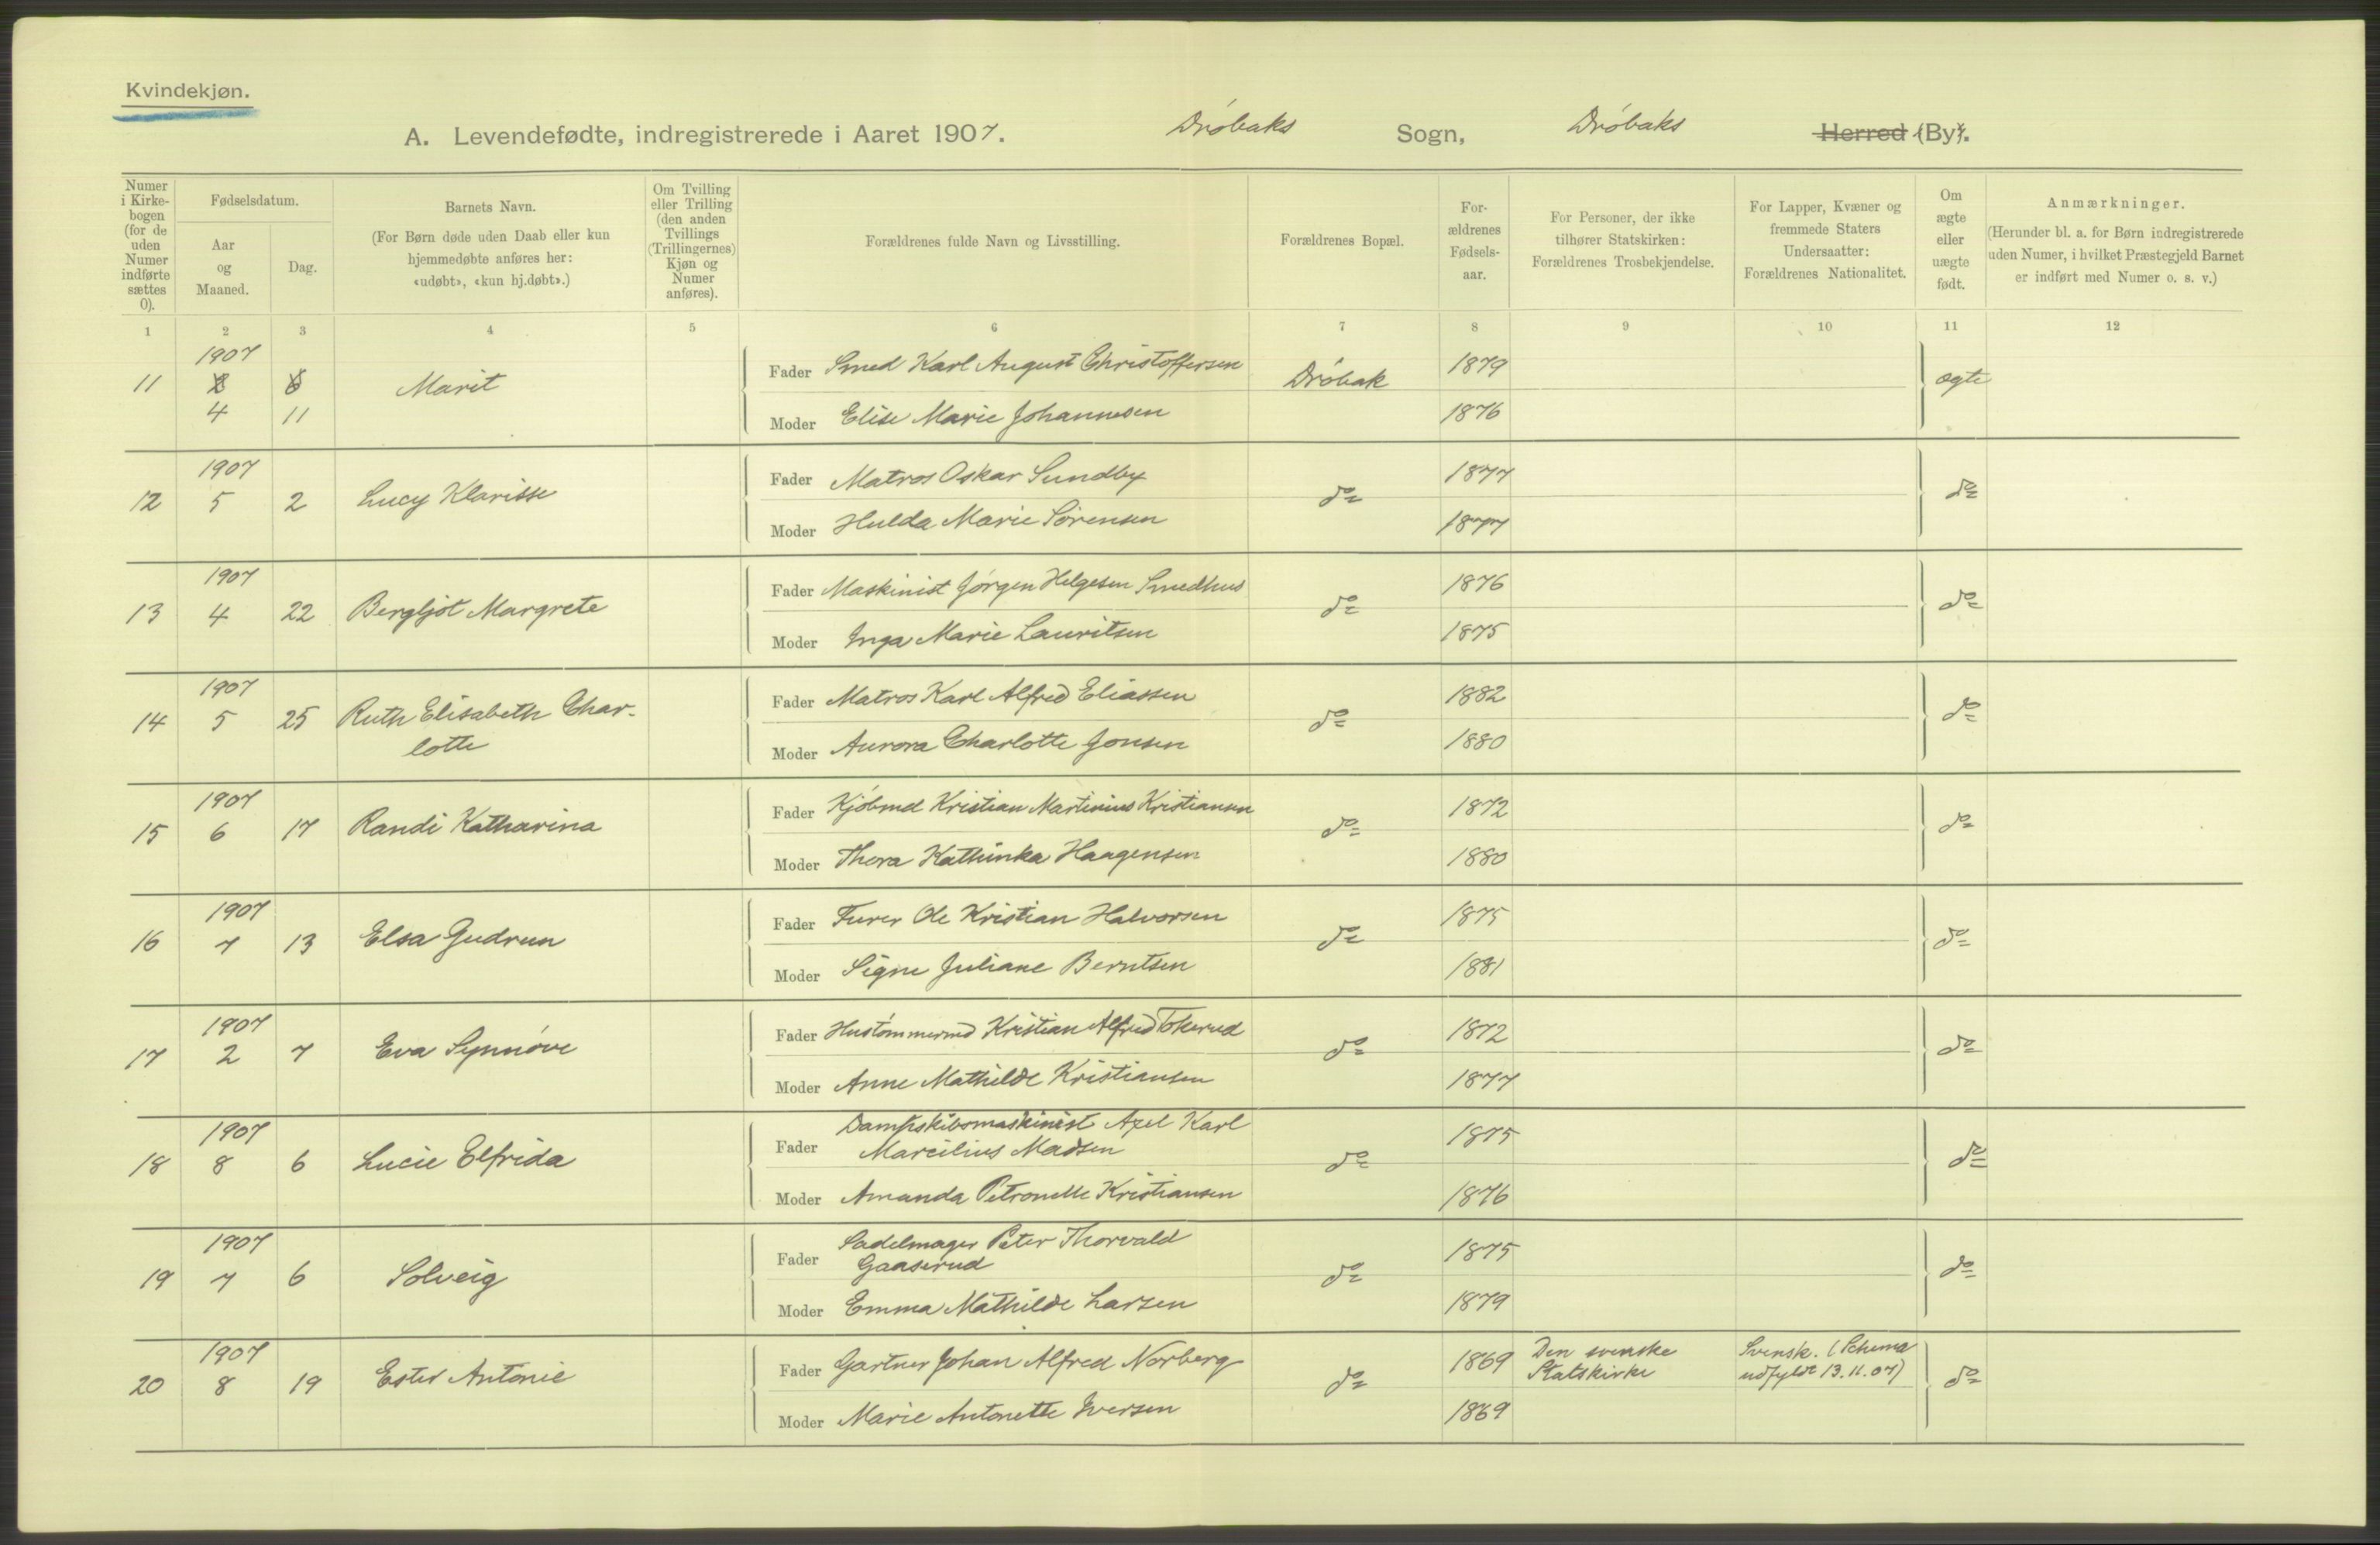 Kvindekjøn.
A. Levendefødte, indregistrerede i Aaret 1907. Drøbaks Sogn, Drøbaks Herred (By).
Numer i Kirke-bogen (for de uden Numer indførte sættes 0).
Fødselsdatum.
Aar og Maaned.
Dag.
Barnets Navn.
(For Børn døde uden Daab eller kun hjemmedøbte anføres her: «udøbt», «kun hj.døbt».)
Om Tvilling eller Trilling (den anden Tvillings (Trillingernes) Kjøn og Numer anføres).
Forældrenes fulde Navn og Livsstilling.
Forældrenes Bopæl.
For-ældrenes Fødsels-aar.
For Personer, der ikke tilhører Statskirken: Forældrenes Trosbekjendelse.
For Lapper, Kvæner og fremmede Staters Undersaatter: Forældrenes Nationalitet.
Om ægte eller uægte født.
Anmærkninger.
(Herunder bl. a. for Børn indregistrerede uden Numer, i hvilket Præstegjeld Barnet er indført med Numer o. s. v.)
1 2 3 4 5 6 7 8 9 10 11 12
1907
Fader Smed Karl August Christoffersen 1879
11 Marit Drøbak ægte
4 11
Moder Elise Marie Johannesen 1876
1907
Fader Matros Oskar Sundby 1877
12 5 2 Lucy Klarisse do do
Moder Hulda Marie Sørensen 1877
1907
Fader Maskinist Jørgen Helgesen Smedhus 1876
13 4 22 Bergljot Margrete do do
Moder Inga Marie Lauritsen 1875
1907
Fader Matros Karl Alfred Eliassen 1882
14 5 25 Ruth Elisabeth Char-
lotte do do
Moder Aurora Charlotte Jonsen 1880
1907
Fader Kjøbmd Kristian Martinius Kristiansen 1872
15 6 17 Randi Katharina do do
Moder Thora Kathinka Haagensen 1880
1907
Fader Furer Ole Kristian Halvorsen 1875
16 7 13 Elsa Gudrun do do
Moder Signe Juliane Berntsen 1881
1907
Fader Hustømmermd Kristian Alfred Tokerud 1872
17 2 7 Eva Synnøve do do
Moder Anne Mathilde Kristiansen 1877
1907
Fader Dampskibsmaskinist Axel Karl
Marcilius Madsen 1875
18 8 6 Lucie Elfrida do do
Moder Amanda Petronelle Kristiansen 1876
1907
Fader Sadelmager Peter Thorvald
Gaaserud 1875
19 7 6 Solveig do do
Moder Emma Mathilde Larsen 1879
1907
Fader Gartner Johan Alfred Norberg 1869 Den svenske Statskirke Svensk. (Schema udfyldt 13.11.07)
20 8 19 Ester Antonie do do
Moder Marie Antonette Iversen 1869